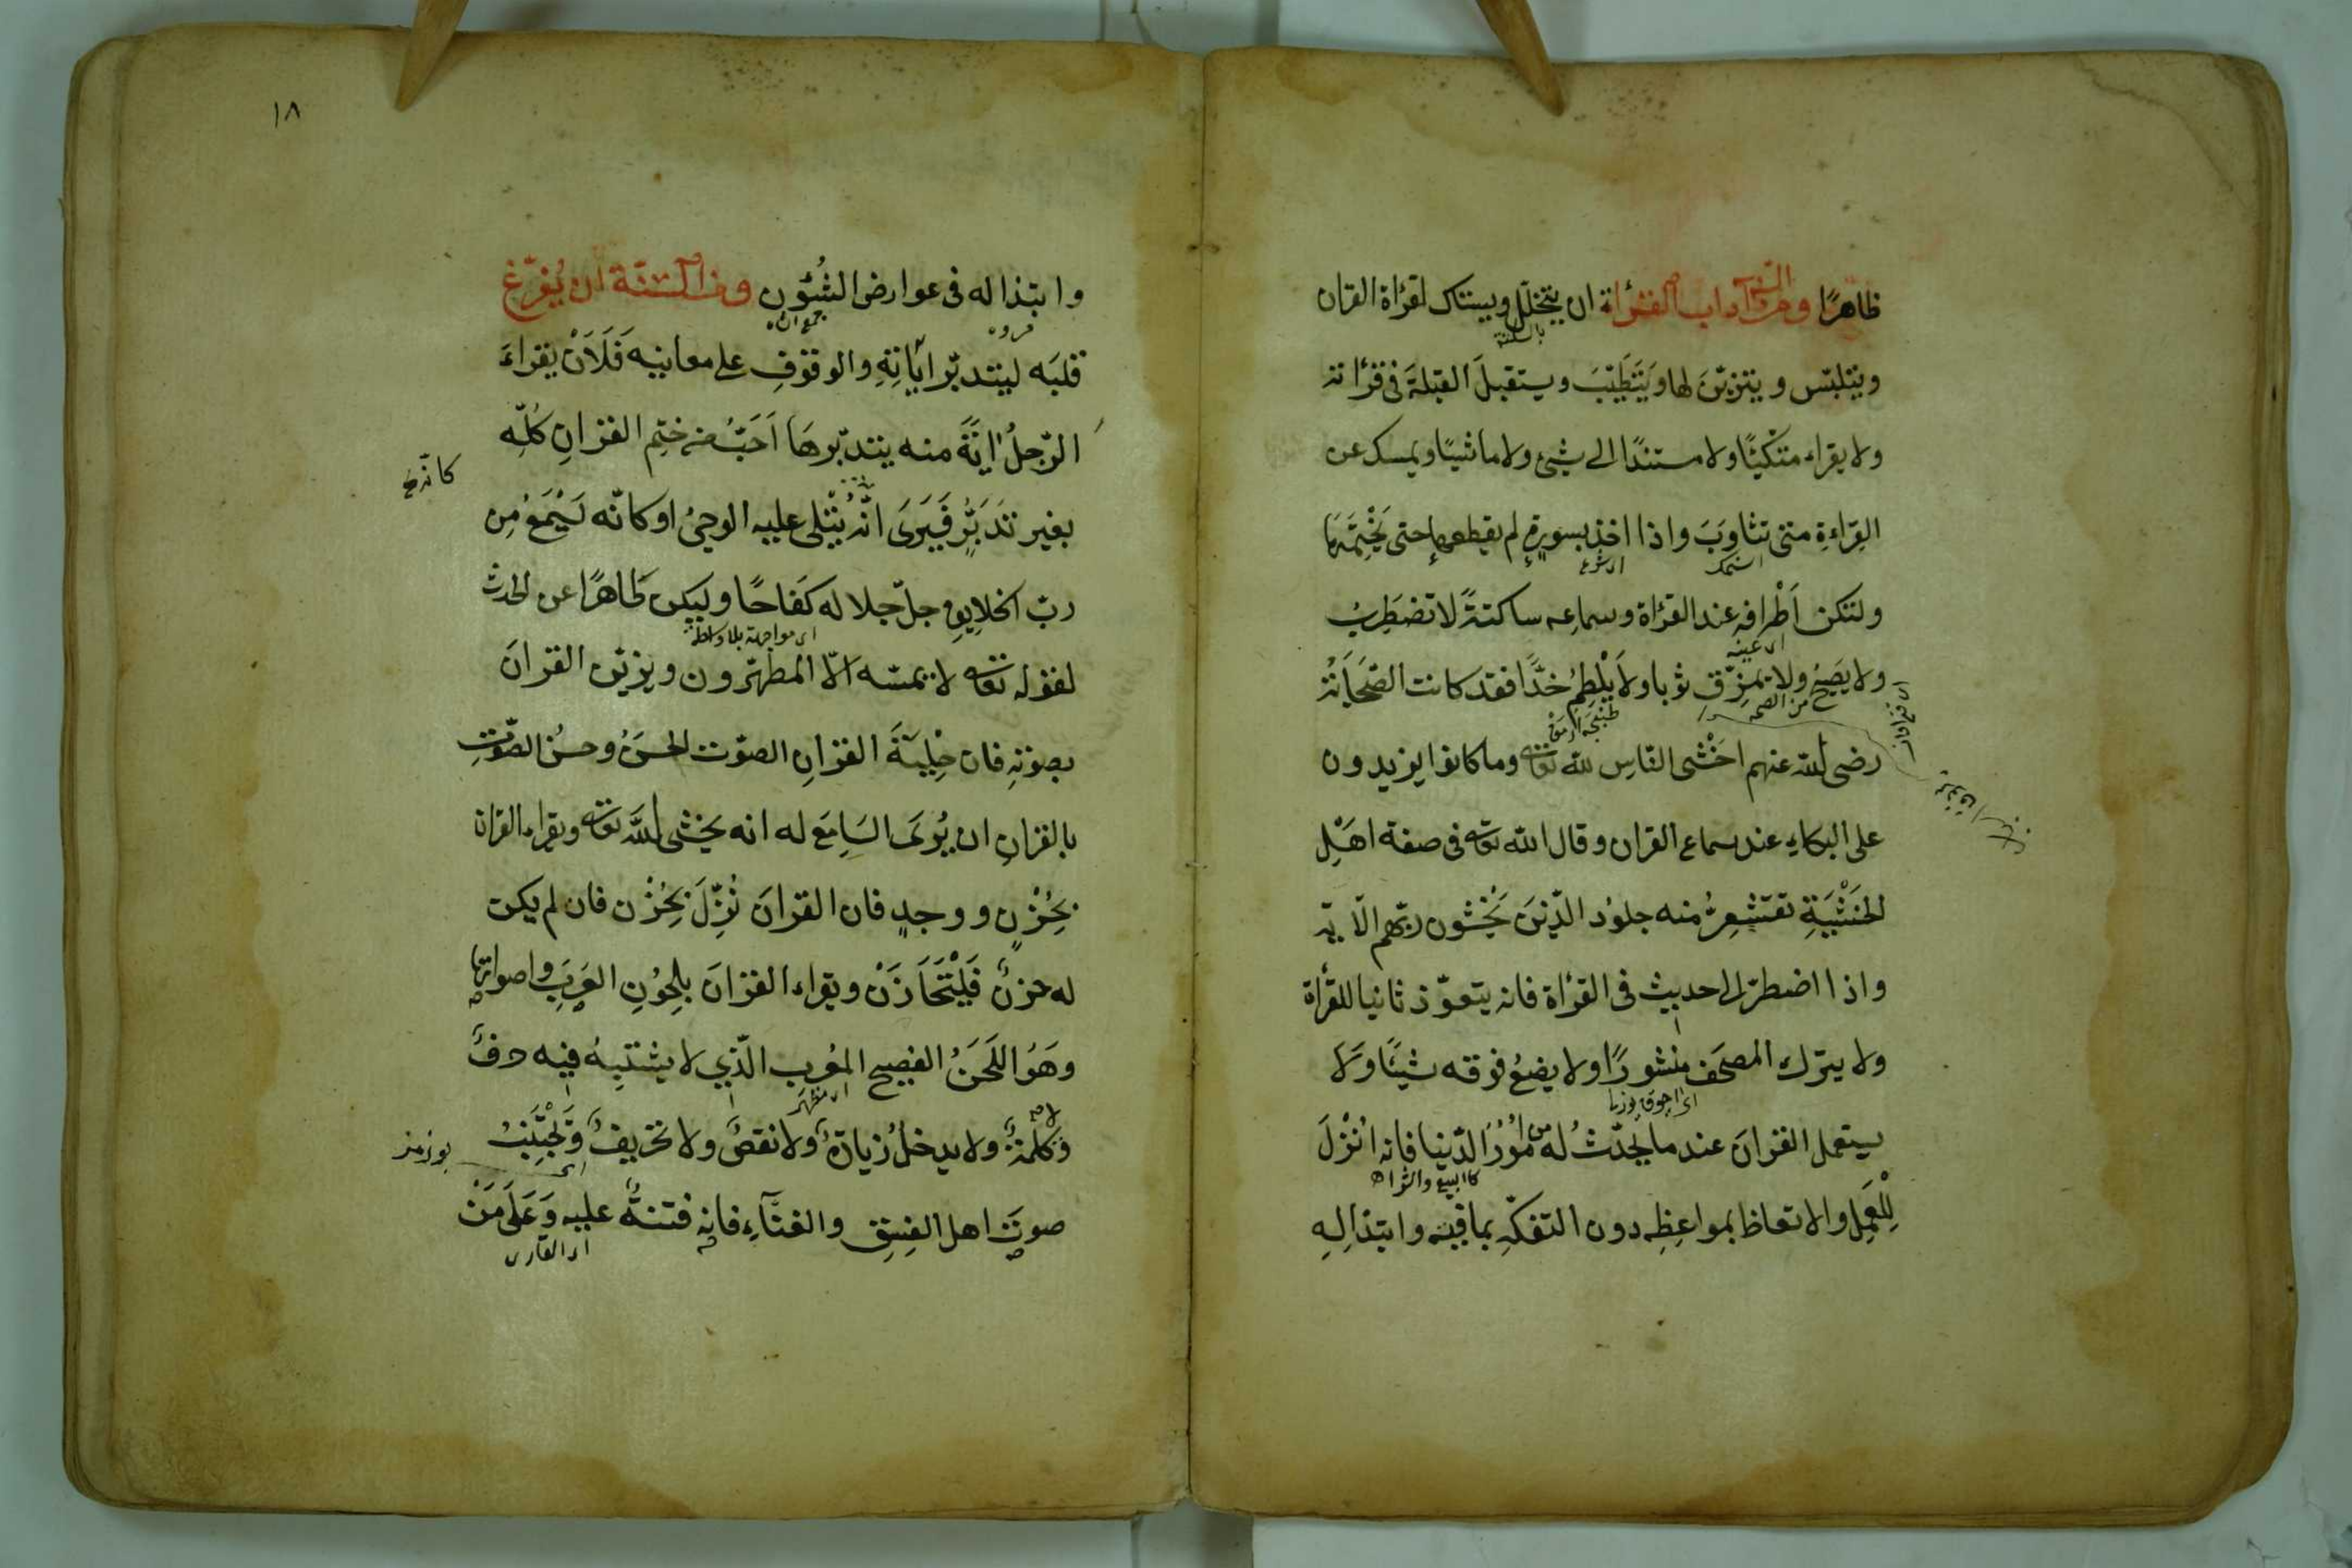 ظاهرًا ومن آداب القرأة ان يتخلّل ويستاك لقرأة القران
ويتلبّس ويتزيّن لها ويَتَطَيّبَ ويستقبلَ القبلةَ فى قرأته
ولا يقراء متّكئًا ولا مستندًا الى شيئ ولا ماشيًا ويمسك عن
القِراءةِ متى تثاوَبَ واذا اخذ بسورةٍ لم يقطعها حتى يَخْتِمَهَا
ولتكن اَطْرافه عند القرأة وسماعِه ساكنةً لا تضطَرِبُ
ولا يَصِيْحُ ولا يمزّق ثوبا ولا يَلْطِمُ خدًّا فقد كانت الصّحَابَةُ
رضى الله عنهم اَخْشى النّاسِ لله تعالى وما كانوا يزيدون
على البكاءِ عند سماع القران وقال الله تعالى فى صفة اهَْلِ
الخَشْيَةِ تقشَعِرُّ منه جلوُد الّذينَ يَخْشَون ربّهم الآية
واذا اضطرّ الى حديث فى القرأة فانه يتعوّذ ثانيا للقرأة
ولا يترك المصحَف منشورًا ولا يضعُ فوقه شيئًا وَلا
يستعمل القرانَ عند ما يحدّثُ له من اُمُوُرِ الدّنيا فانه اُنْزلَ
لِلْعَمِل والاتعاظ بمواعِظِه دون التفكّهِ بما فيه وابتذالِهِ
١٨
وابتذاله فى عوارض الشُئُون ومن السنّة ان يُفرّغ
قلبَه ليتدبّر اياتِهِ والوقوفِ على معانيه فَلَاَنْ يقراءَ
الرّجلُ ايةً منه يتدبّرهَا اَحَبُّ من ختمِ القرانِ كُلِّه
كانّه
بغير تَدَبُّرٍ فَيَرىَ انّه يُتْلى عليه الوحىُ او كانّه يَسْمَعُ مِن
ربّ الخلايِقِ جلّ جلاله كفَاحًا وليكن طَاهرًا عن الحدث
اى مواجهة بلا واسطة
لقوله تعالى لا يمسّه الّا المطهّرون ويزيّن القرانَ
بصوتهِ فان حِلْيَةَ القرانِ الصوّت الحسَنُ وحسنُ الصوّتِ
بالقرانِ ان يُرىَ السَامِعَ له انه يخشى اللهَ تعالى ويقراء القران
بحُزْنٍ ووجدٍ فان القرانَ نُزِّلَ بحُزْن فان لم يكن
له حزنٌ فَلْيَتَحَازَنْ ويقراء القرانَ بلحُوُنِ العَرَبِ واصواتها
وهَوُ اللَحَنُ الفصيح المعُرب الّذي لا يشتبِهُ فيه حرفٌ
اى مظهر
وَكلمةٌ ولا يدخلُ زيادةٌ ولا نقصٌ ولا تحريفٌ وَيَجْتَنِبُ
صوتَ اهل الفِسْقِ والغنَآءِ فانه فتنةٌ عليه وَعَلَى مَنْ
اى القارى